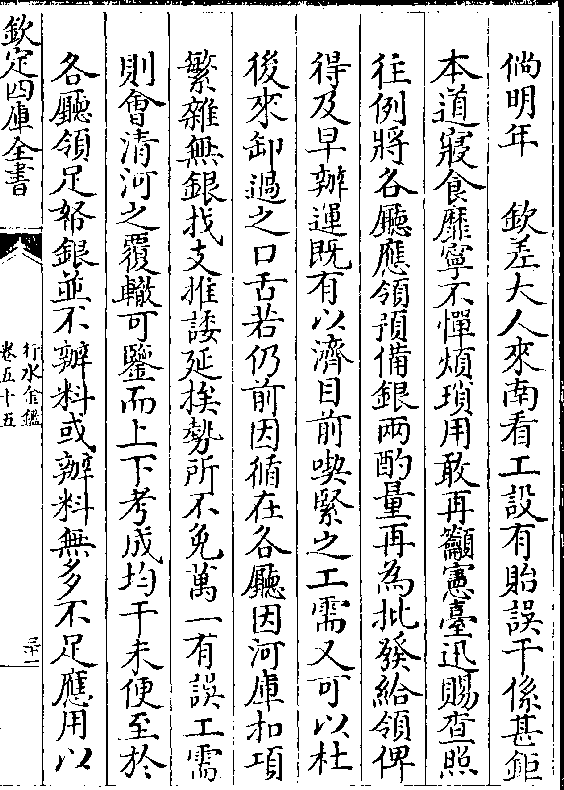 倘明年　欽差大人來南看工設有貽誤干係甚鉅
本道寢食靡寧不憚煩瑣用敢再籲憲臺迅賜查照
往例將各廳應領預備銀兩酌量再為批發給領俾
得及早辦運既有以濟目前喫緊之工需又可以杜
後來卸過之口舌若仍前因循在各廳因河庫扣項
繁雜無銀找支推諉延挨勢所不免萬一有誤工需
則會清河之覆轍可鑒而上下考成均干未便至於
各廳領足帑銀並不辦料或辦料無多不足應用以
欽定四庫全書
行水金鑑
卷五十五
三十一